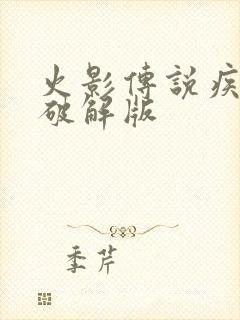 火影傳說疾
破解版
季芹